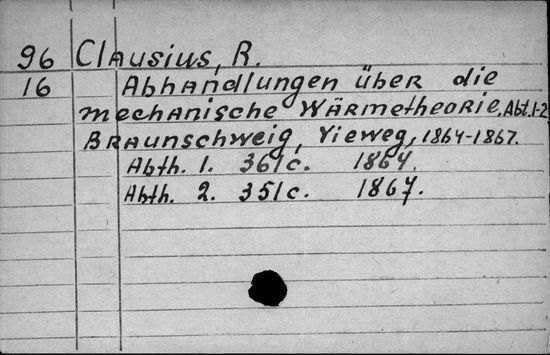 96 Clausius, R.
16 Abhandlungen über die
mechanische Wärmetheorie, Abt. 1-2
Braunschweig, Vieweg, 1864-1867.
Abth. 1. 361 c. 1864.
Abth. 2. 351 c. 1867.